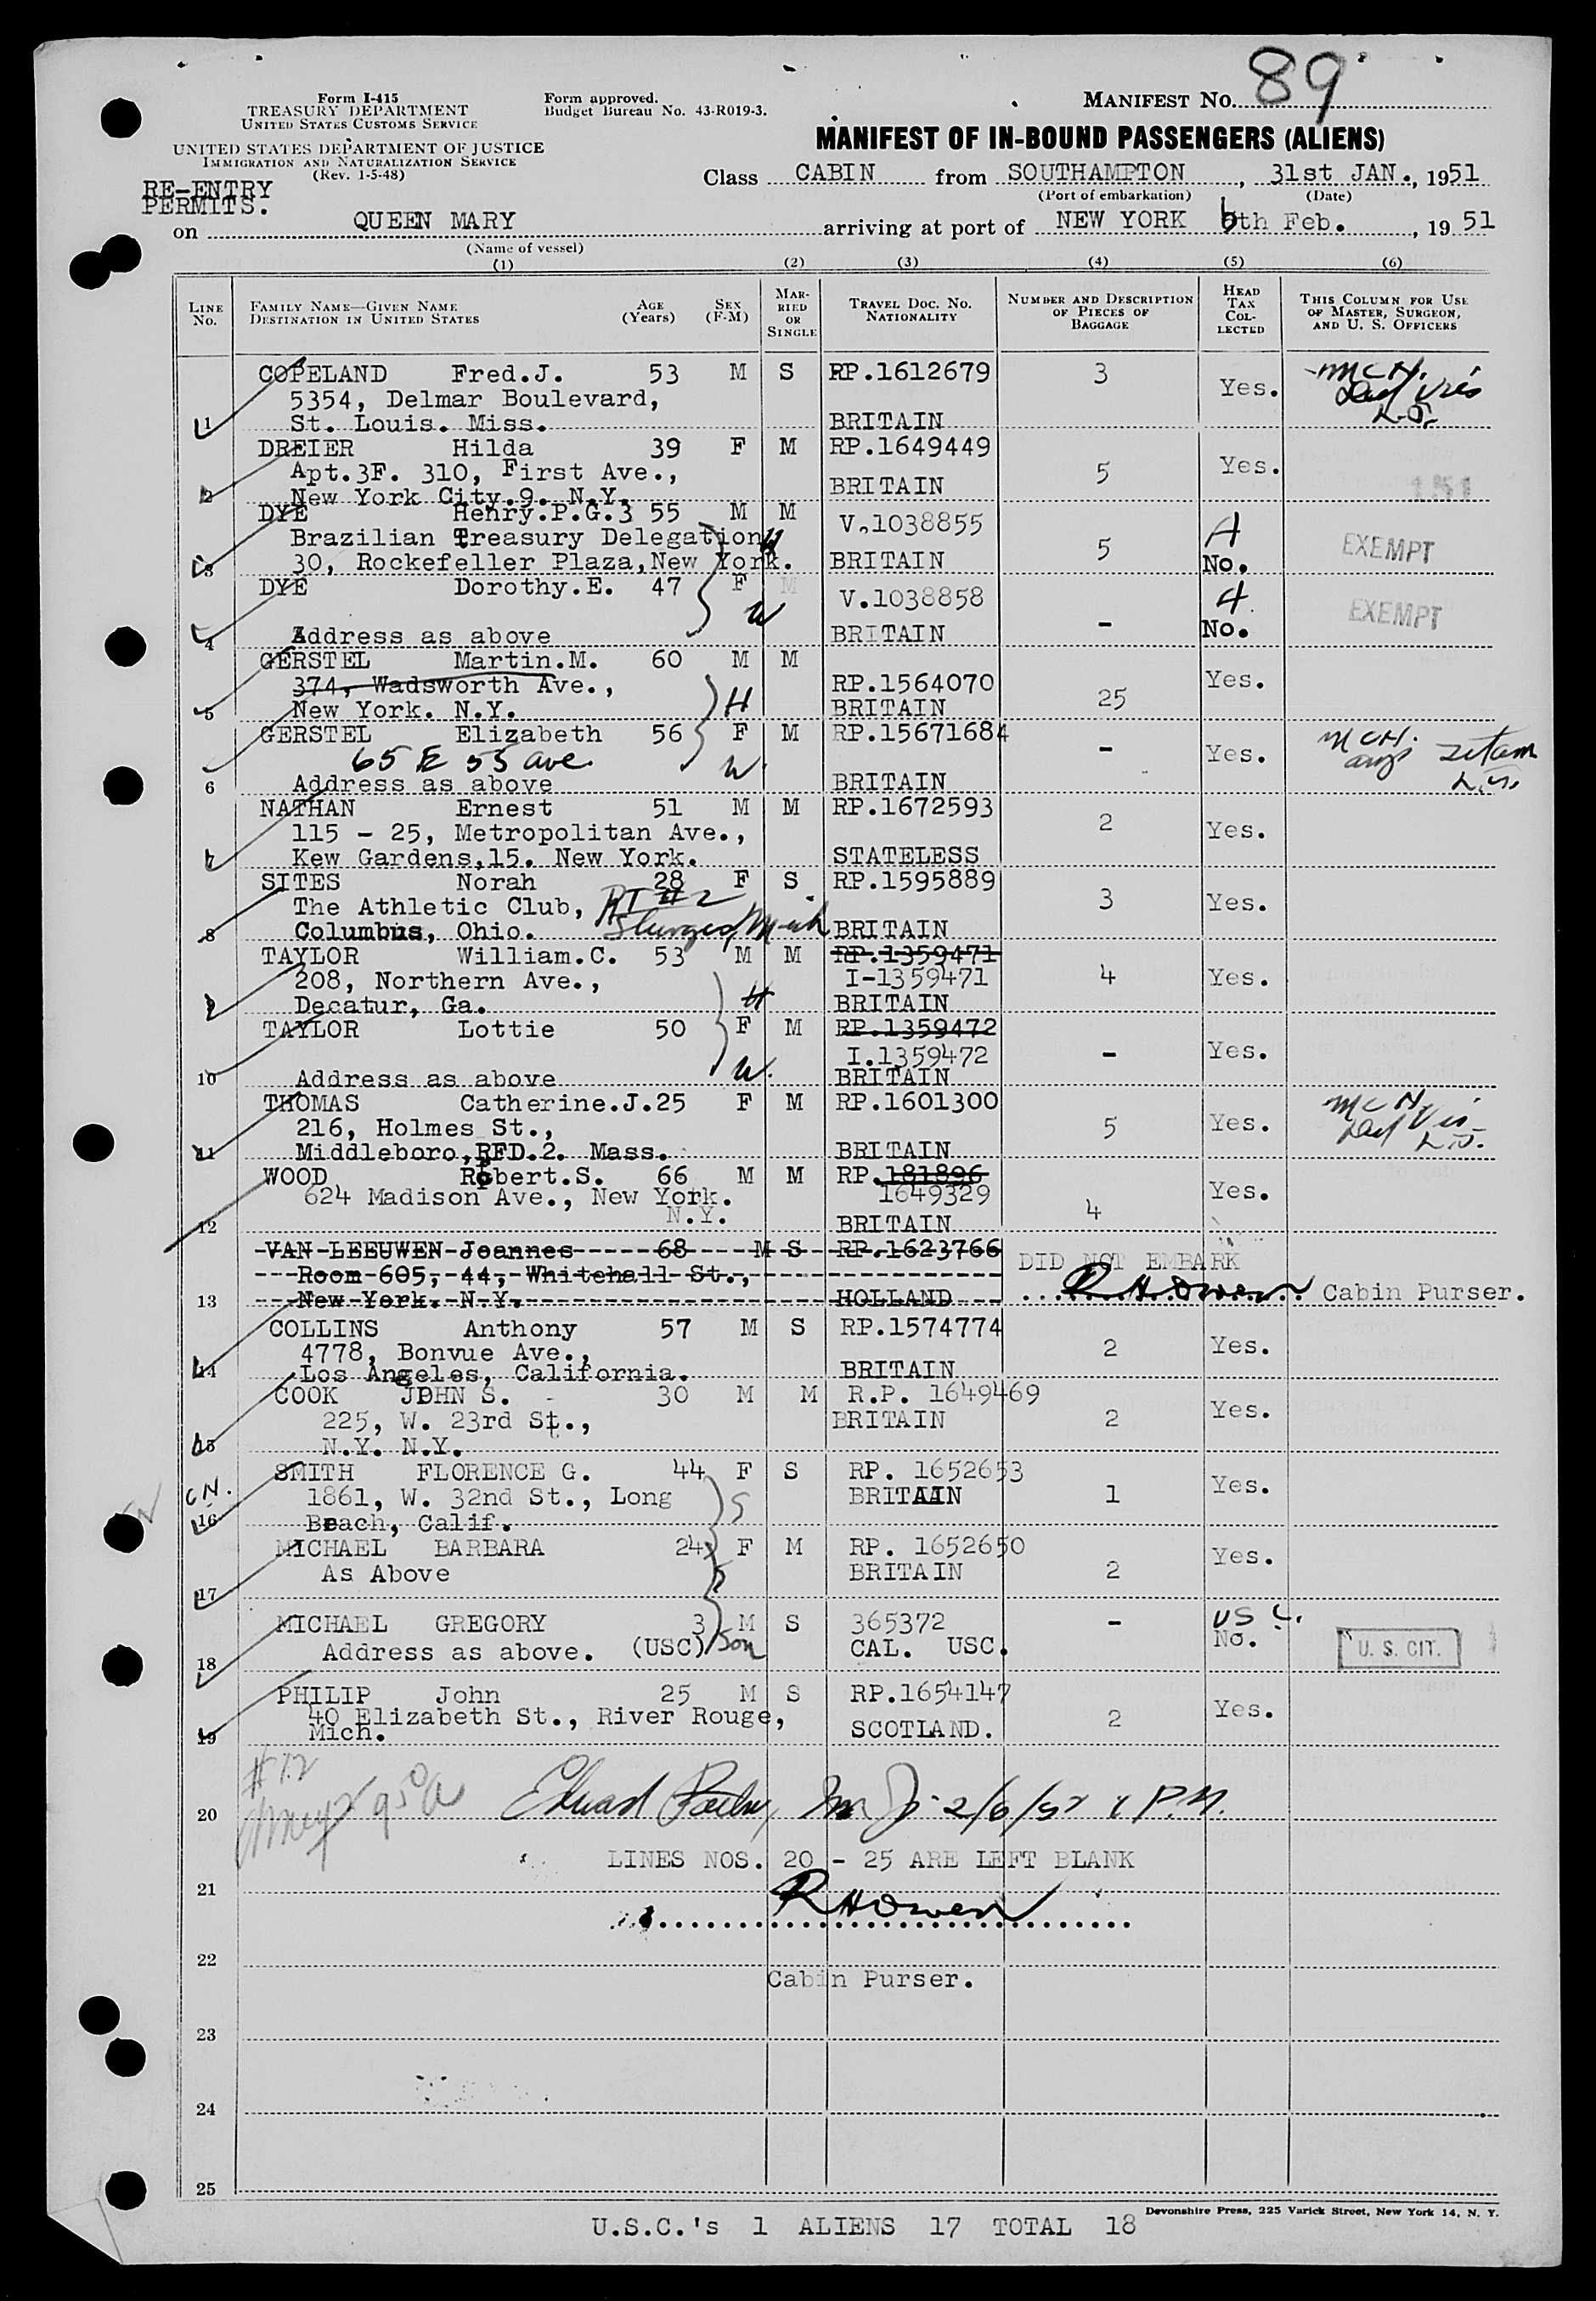 89
Form I-415
TREASURY DEPARTMENT
UNITED STATES CUSTOMS SERVICE
UNITED STATES DEPARTMENT OF JUSTICE
IMMIGRATION AND NATURALIZATION SERVICE
(Rev. 1-5-48)
Form approved.
Budget Bureau No. 43-R019-3.
MANIFEST NO.
MANIFEST OF IN-BOUND PASSENGERS (ALIENS)
RE-ENTRY
PERMITS.
Class CABIN from SOUTHAMPTON, 31st JAN., 1951
(Port of embarkation) (Date)
on QUEEN MARY arriving at port of NEW YORK 6th Feb., 1951
(Name of vessel)
(1) (2) (3) (4) (5) (6)
LINE No.
FAMILY NAME—GIVEN NAME
DESTINATION IN UNITED STATES
AGE (Years)
SEX (F-M)
MARRIED OR SINGLE
TRAVEL DOC. NO. NATIONALITY
NUMBER AND DESCRIPTION OF PIECES OF BAGGAGE
HEAD TAX COLLECTED
THIS COLUMN FOR USE OF MASTER, SURGEON, AND U. S. OFFICERS
COPELAND Fred.J. 53 M S RP.1612679 3 Yes. MCH.
5354, Delmar Boulevard,
1 St. Louis. Miss. BRITAIN
DREIER Hilda 39 F M RP.1649449 5 Yes.
Apt.3F. 310, First Ave.,
2 New York City.9. N.Y. BRITAIN
DYE Henry.P.G.3 55 M M V.1038855 5 A
Brazilian Treasury Delegation H EXEMPT
3 30, Rockefeller Plaza,New York. BRITAIN No.
DYE Dorothy.E. 47 F M V.1038858 - A
W EXEMPT
4 Address as above BRITAIN No.
GERSTEL Martin.M. 60 M M RP.1564070 25 Yes.
374, Wadsworth Ave., H
5 New York. N.Y. BRITAIN
GERSTEL Elizabeth 56 F M RP.15671684 - Yes. MCH.
65 E 55 ave W.
6 Address as above BRITAIN
NATHAN Ernest 51 M M RP.1672593 2 Yes.
115 - 25, Metropolitan Ave.,
7 Kew Gardens,15. New York. STATELESS
SITES Norah 28 F S RP.1595889 3 Yes.
The Athletic Club, RT #2
8 Columbus, Ohio. Sturges, Mich BRITAIN
TAYLOR William.C. 53 M M RP.1359471 4 Yes.
208, Northern Ave., I-1359471
9 Decatur, Ga. H BRITAIN
TAYLOR Lottie 50 F M RP.1359472 - Yes.
I.1359472
10 Address as above W. BRITAIN
THOMAS Catherine.J.25 F M RP.1601300 5 Yes. MCH
216, Holmes St.,
11 Middleboro,RFD.2. Mass. BRITAIN
WOOD Robert.S. 66 M M RP.181896 4 Yes.
624 Madison Ave., New York. 1649329
N.Y.
12 BRITAIN
VAN LEEUWEN Joannes 68 M S RP.1623766 DID NOT EMBARK
Room 605, 44, Whitehall St.,
13 New York. N.Y. HOLLAND R H Owen Cabin Purser.
COLLINS Anthony 57 M S RP.1574774 2 Yes.
4778, Bonvue Ave.,
14 Los Angeles, California. BRITAIN
COOK JOHN S. 30 M M R.P. 1649469 2 Yes.
225, W. 23rd St., BRITAIN
15 N.Y. N.Y.
SMITH FLORENCE G. 44 F S RP. 1652653 1 Yes.
CN. 1861, W. 32nd St., Long BRITAIN
16 Beach, Calif.
MICHAEL BARBARA 24 F M RP. 1652650 2 Yes.
As Above BRITAIN
17
MICHAEL GREGORY 3 M S 365372 - US C.
Address as above. (USC) Son CAL. USC. No. U. S. CIT.
18
PHILIP John 25 M S RP.1654147 2 Yes.
40 Elizabeth St., River Rouge, SCOTLAND.
19 Mich.
#12
20 2/6/51 P.M.
LINES NOS. 20 - 25 ARE LEFT BLANK
21
R H Owen
22
Cabin Purser.
23
24
25
Devonshire Press, 225 Varick Street, New York 14, N. Y.
U.S.C.'s 1 ALIENS 17 TOTAL 18